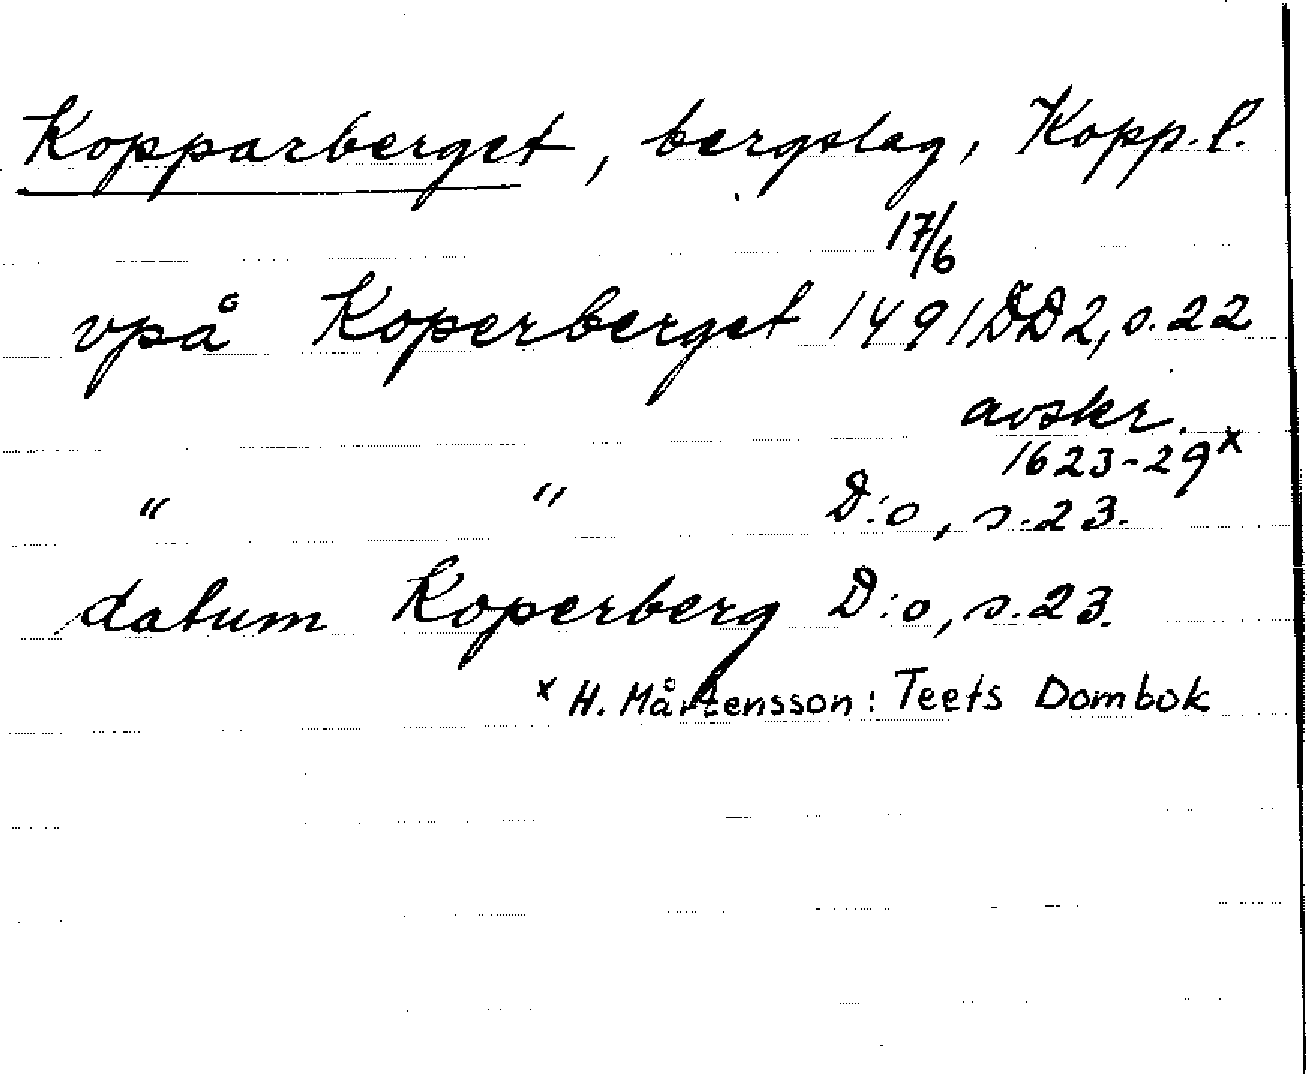 Kopparberget, bergslag, Kopp. l.
17/6
vpå Koperberget 1491 DD2, s. 22
avskr.
1623-29x
" " D:o, s. 23.
datum Koperberg D:o, s. 23.
x H. Mårtensson: Teets Dombok